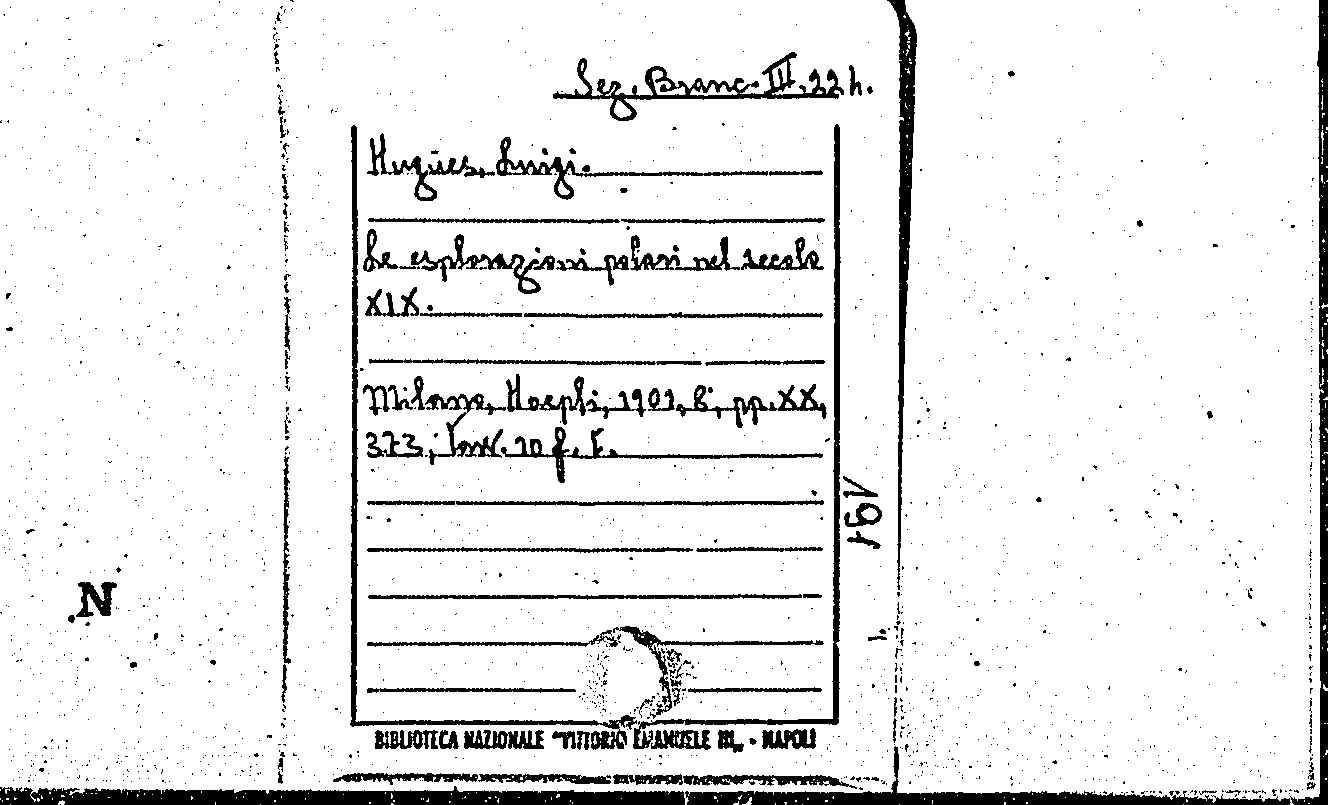 Sez. Branc. III. 22 h.
Hugues, Luigi.
Le esplorazioni polari nel secolo
XIX.
Milano, Hoepli, 1901, 8°, pp. XX,
373; tav. 10 f. t.
191
N
BIBLIOTECA NAZIONALE "VITTORIO EMANUELE III" - NAPOLI